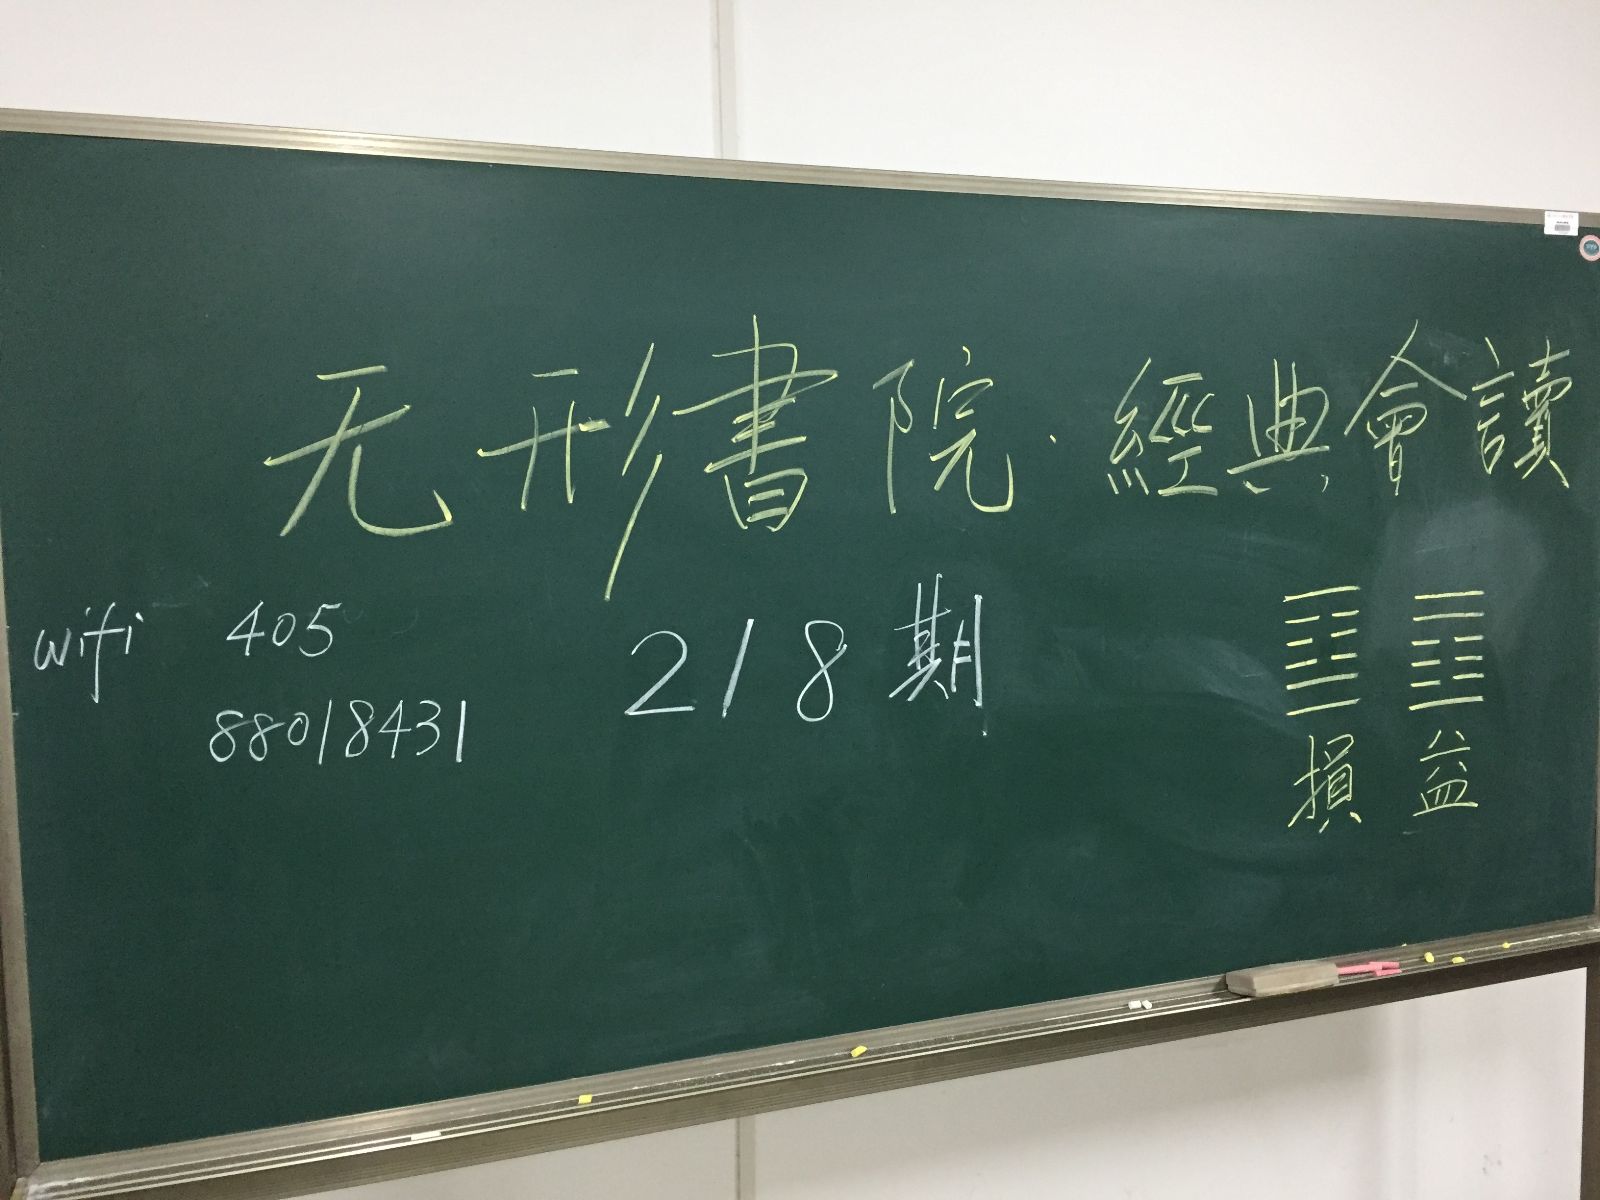 无形書院·經典會讀
wifi 405
88018431
218期
損 益